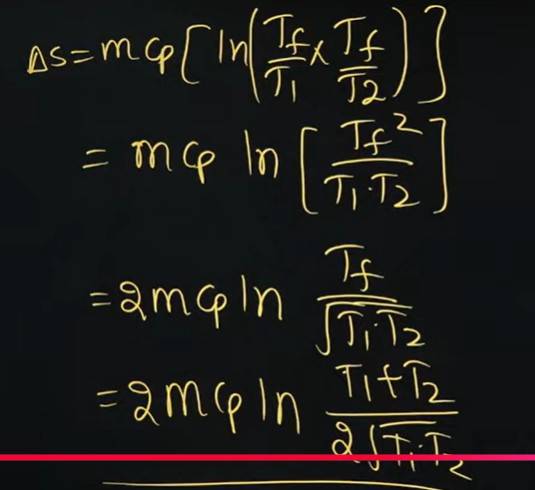 ΔS = m cp [ ln( Tf/T1 × Tf/T2 ) ]
= m cp ln [ Tf²/T1·T2 ]
= 2 m cp ln Tf/√T1·T2
= 2 m cp ln T1+T2/2√T1·T2